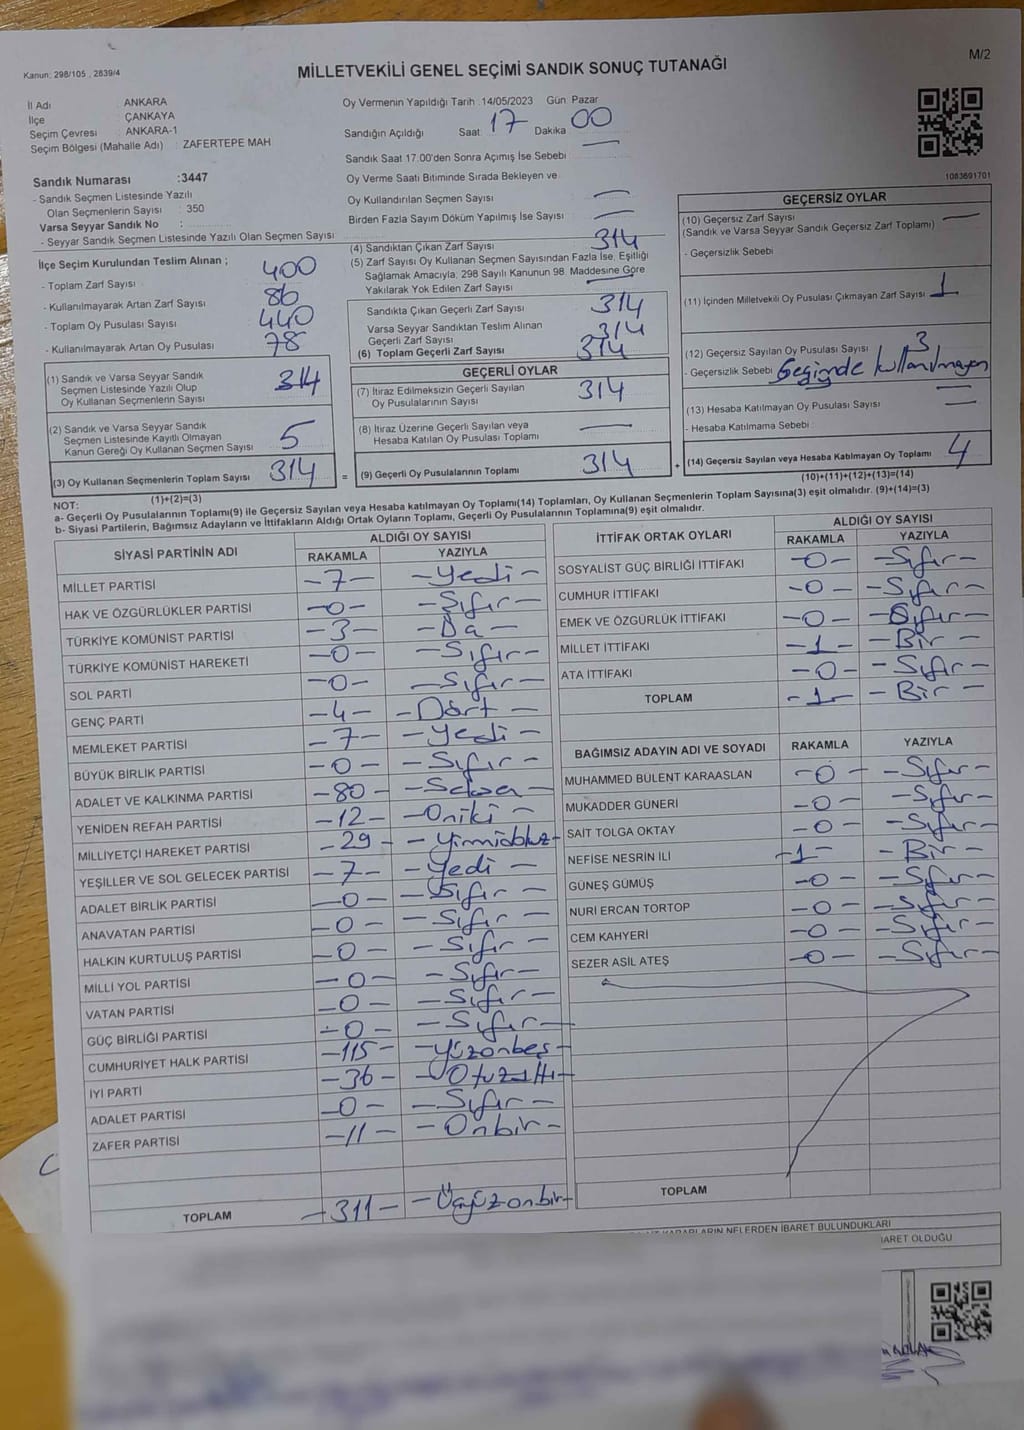 Kanun: 298/105 , 2839/4
MİLLETVEKİLİ GENEL SEÇİMİ SANDIK SONUÇ TUTANAĞI
M/2
İl Adı : ANKARA
İlçe : ÇANKAYA
Seçim Çevresi : ANKARA-1
Seçim Bölgesi (Mahalle Adı) : ZAFERTEPE MAH
Sandık Numarası :3447
- Sandık Seçmen Listesinde Yazılı
Olan Seçmenlerin Sayısı : 350
Varsa Seyyar Sandık No :
- Seyyar Sandık Seçmen Listesinde Yazılı Olan Seçmen Sayısı :
İlçe Seçim Kurulundan Teslim Alınan ;
- Toplam Zarf Sayısı : 400
- Kullanılmayarak Artan Zarf Sayısı : 86
- Toplam Oy Pusulası Sayısı : 440
- Kullanılmayarak Artan Oy Pusulası : 78
(1) Sandık ve Varsa Seyyar Sandık
Seçmen Listesinde Yazılı Olup
Oy Kullanan Seçmenlerin Sayısı : 314
(2) Sandık ve Varsa Seyyar Sandık
Seçmen Listesinde Kayıtlı Olmayan
Kanun Gereği Oy Kullanan Seçmen Sayısı : 5
(3) Oy Kullanan Seçmenlerin Toplam Sayısı : 314
(1)+(2)=(3)
Oy Vermenin Yapıldığı Tarih :14/05/2023 Gün: Pazar
Sandığın Açıldığı Saat: 17 Dakika: 00
Sandık Saat 17.00'den Sonra Açımış İse Sebebi : —
Oy Verme Saati Bitiminde Sırada Bekleyen ve
Oy Kullandırılan Seçmen Sayısı : —
Birden Fazla Sayım Döküm Yapılmış İse Sayısı : —
(4) Sandıktan Çıkan Zarf Sayısı : 314
(5) Zarf Sayısı Oy Kullanan Seçmen Sayısından Fazla İse, Eşitliği
Sağlamak Amacıyla; 298 Sayılı Kanunun 98. Maddesine Göre
Yakılarak Yok Edilen Zarf Sayısı : —
Sandıkta Çıkan Geçerli Zarf Sayısı : 314
Varsa Seyyar Sandıktan Teslim Alınan
Geçerli Zarf Sayısı : 314
(6) Toplam Geçerli Zarf Sayısı : 314
GEÇERLİ OYLAR
(7) İtiraz Edilmeksizin Geçerli Sayılan
Oy Pusulalarının Sayısı : 314
(8) İtiraz Üzerine Geçerli Sayılan veya
Hesaba Katılan Oy Pusulası Toplamı : —
= (9) Geçerli Oy Pusulalarının Toplamı : 314
1083691701
GEÇERSİZ OYLAR
(10) Geçersiz Zarf Sayısı : —
(Sandık ve Varsa Seyyar Sandık Geçersiz Zarf Toplamı)
- Geçersizlik Sebebi :
(11) İçinden Milletvekili Oy Pusulası Çıkmayan Zarf Sayısı : 1
(12) Geçersiz Sayılan Oy Pusulası Sayısı : 3
- Geçersizlik Sebebi : Seçimde kullanılmayan
(13) Hesaba Katılmayan Oy Pusulası Sayısı : —
- Hesaba Katılmama Sebebi : —
+ (14) Geçersiz Sayılan veya Hesaba Katılmayan Oy Toplamı : 4
(10)+(11)+(12)+(13)=(14)
NOT:
a- Geçerli Oy Pusulalarının Toplamı(9) ile Geçersiz Sayılan veya Hesaba katılmayan Oy Toplamı(14) Toplamları, Oy Kullanan Seçmenlerin Toplam Sayısına(3) eşit olmalıdır. (9)+(14)=(3)
b- Siyasi Partilerin, Bağımsız Adayların ve İttifakların Aldığı Ortak Oyların Toplamı, Geçerli Oy Pusulalarının Toplamına(9) eşit olmalıdır.
SİYASİ PARTİNİN ADI ALDIĞI OY SAYISI
RAKAMLA YAZIYLA
MİLLET PARTİSİ -7- -Yedi-
HAK VE ÖZGÜRLÜKLER PARTİSİ -0- -Sıfır-
TÜRKİYE KOMÜNİST PARTİSİ -3-
TÜRKİYE KOMÜNİST HAREKETİ -0- -Sıfır-
SOL PARTİ -0- -Sıfır-
GENÇ PARTİ -4- -Dört-
MEMLEKET PARTİSİ -7- -Yedi-
BÜYÜK BİRLİK PARTİSİ -0- -Sıfır-
ADALET VE KALKINMA PARTİSİ -80- -Seksen-
YENİDEN REFAH PARTİSİ -12- -Oniki-
MİLLİYETÇİ HAREKET PARTİSİ -29- -Yirmidokuz-
YEŞİLLER VE SOL GELECEK PARTİSİ -7- -Yedi-
ADALET BİRLİK PARTİSİ -0- -Sıfır-
ANAVATAN PARTİSİ -0- -Sıfır-
HALKIN KURTULUŞ PARTİSİ -0- -Sıfır-
MİLLİ YOL PARTİSİ -0- -Sıfır-
VATAN PARTİSİ -0- -Sıfır-
GÜÇ BİRLİĞİ PARTİSİ -0- -Sıfır-
CUMHURİYET HALK PARTİSİ -115- -Yüzonbeş-
İYİ PARTİ -36- -Otuzaltı-
ADALET PARTİSİ -0- -Sıfır-
ZAFER PARTİSİ -11- -Onbir-
TOPLAM -311- -Üçyüzonbir-
İTTİFAK ORTAK OYLARI ALDIĞI OY SAYISI
RAKAMLA YAZIYLA
SOSYALİST GÜÇ BİRLİĞİ İTTİFAKI -0- -Sıfır-
CUMHUR İTTİFAKI -0- -Sıfır-
EMEK VE ÖZGÜRLÜK İTTİFAKI -0- -Sıfır-
MİLLET İTTİFAKI -1- -Bir-
ATA İTTİFAKI -0- -Sıfır-
TOPLAM -1- -Bir-
BAĞIMSIZ ADAYIN ADI VE SOYADI RAKAMLA YAZIYLA
MUHAMMED BÜLENT KARAASLAN -0- -Sıfır-
MUKADDER GÜNERİ -0- -Sıfır-
SAİT TOLGA OKTAY -0- -Sıfır-
NEFİSE NESRİN İLİ -1- -Bir-
GÜNEŞ GÜMÜŞ -0- -Sıfır-
NURİ ERCAN TORTOP -0- -Sıfır-
CEM KAHYERİ -0- -Sıfır-
SEZER ASİL ATEŞ -0- -Sıfır-
TOPLAM
NELERDEN İBARET BULUNDUKLARI
OLDUĞU